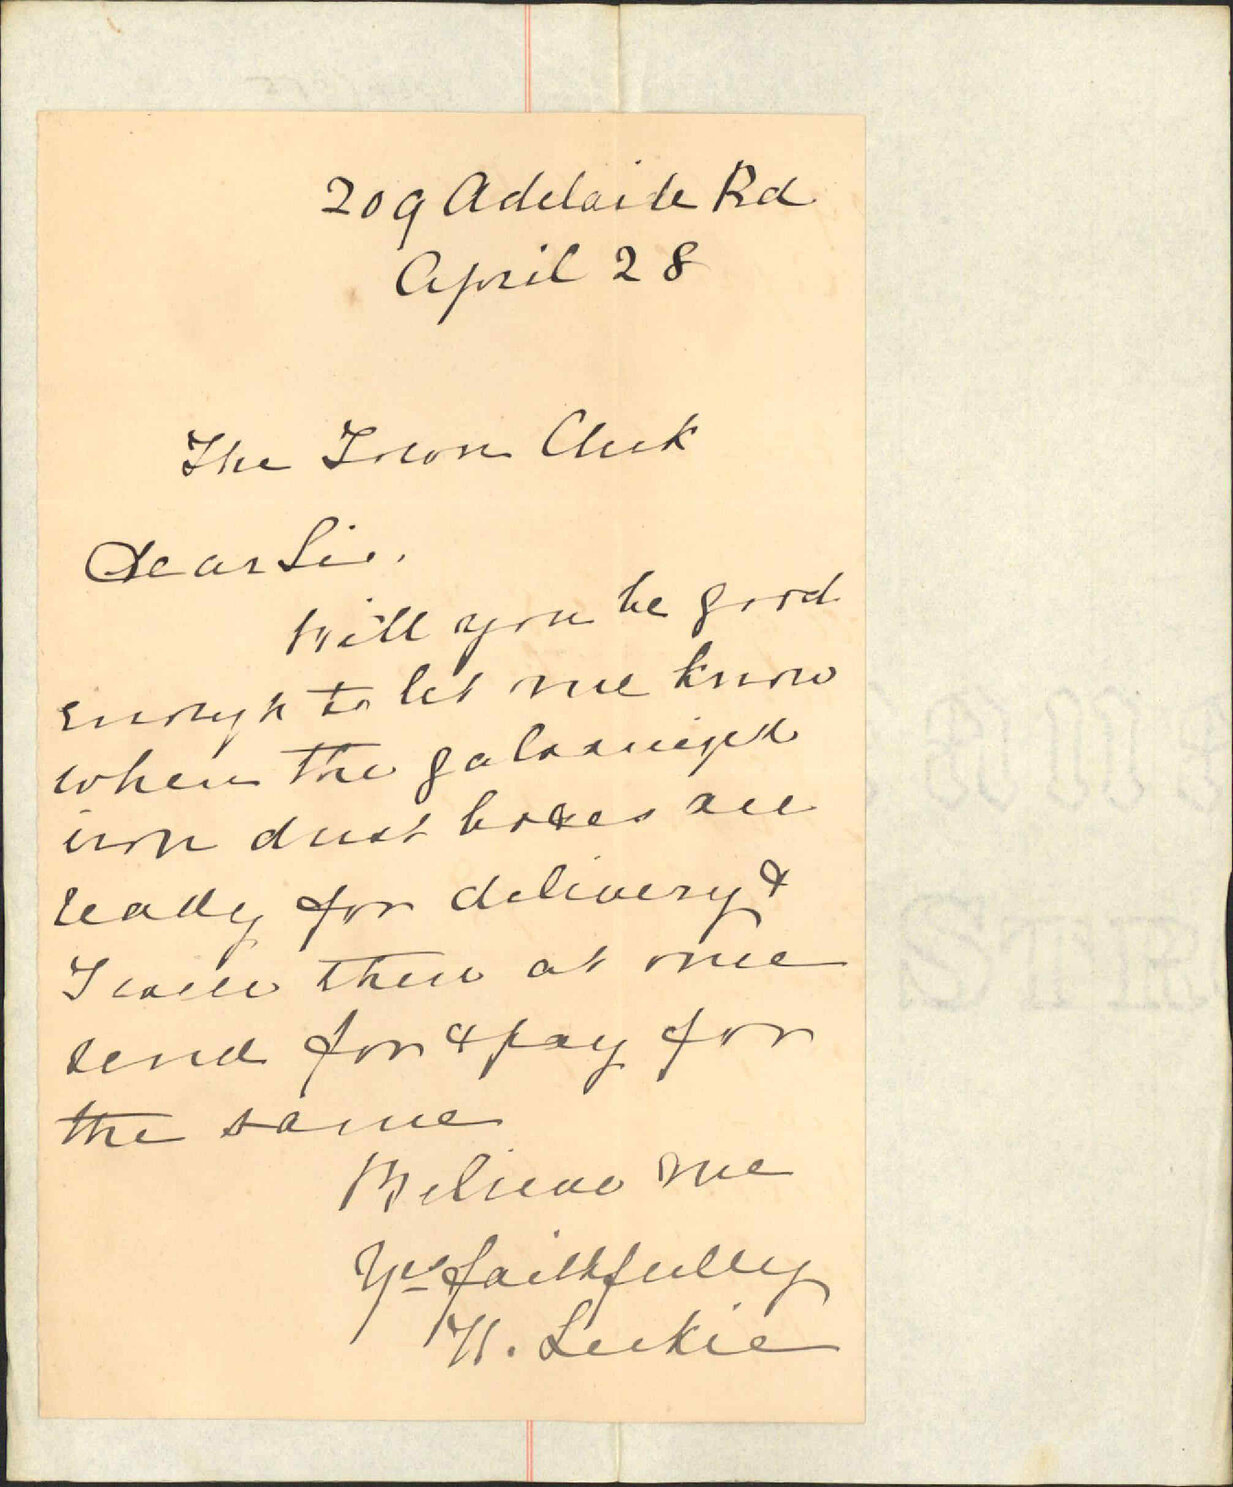 209 Adelaide Rd
April 28
The Town Clerk
Dear Sir.
Will you be good
enough to let me know
when the galvanized
iron dust boxes are
ready for delivery &
I will then at once
send for & pay for
the same
Believe me
Yrs faithfully
H. Leckie